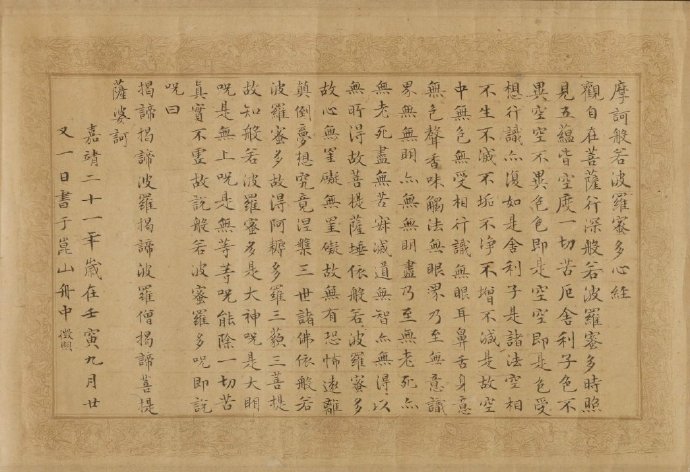 摩訶般若波羅蜜多心經
觀自在菩薩行深般若波羅蜜多時照
見五蘊皆空度一切苦厄舍利子色不
異空空不異色色即是空空即是色受
想行識亦復如是舍利子是諸法空相
不生不滅不垢不淨不增不減是故空
中無色無受想行識無眼耳鼻舌身意
無色聲香味觸法無眼界乃至無意識
界無無明亦無無明盡乃至無老死亦
無老死盡無苦寂滅道無智亦無得以
無所得故菩提薩埵依般若波羅蜜多
故心無罣礙無罣礙故無有恐怖遠離
顛倒夢想究竟涅槃三世諸佛依般若
波羅蜜多故得阿耨多羅三藐三菩提
故知般若波羅蜜多是大神咒是大明
咒是無上咒是無等等咒能除一切苦
真實不虛故說般若波蜜羅多咒即說
咒曰
揭諦揭諦波羅揭諦波羅僧揭諦菩提
薩婆訶
嘉靖二十一年歲在壬寅九月廿
又一日書于崑山舟中 徵明